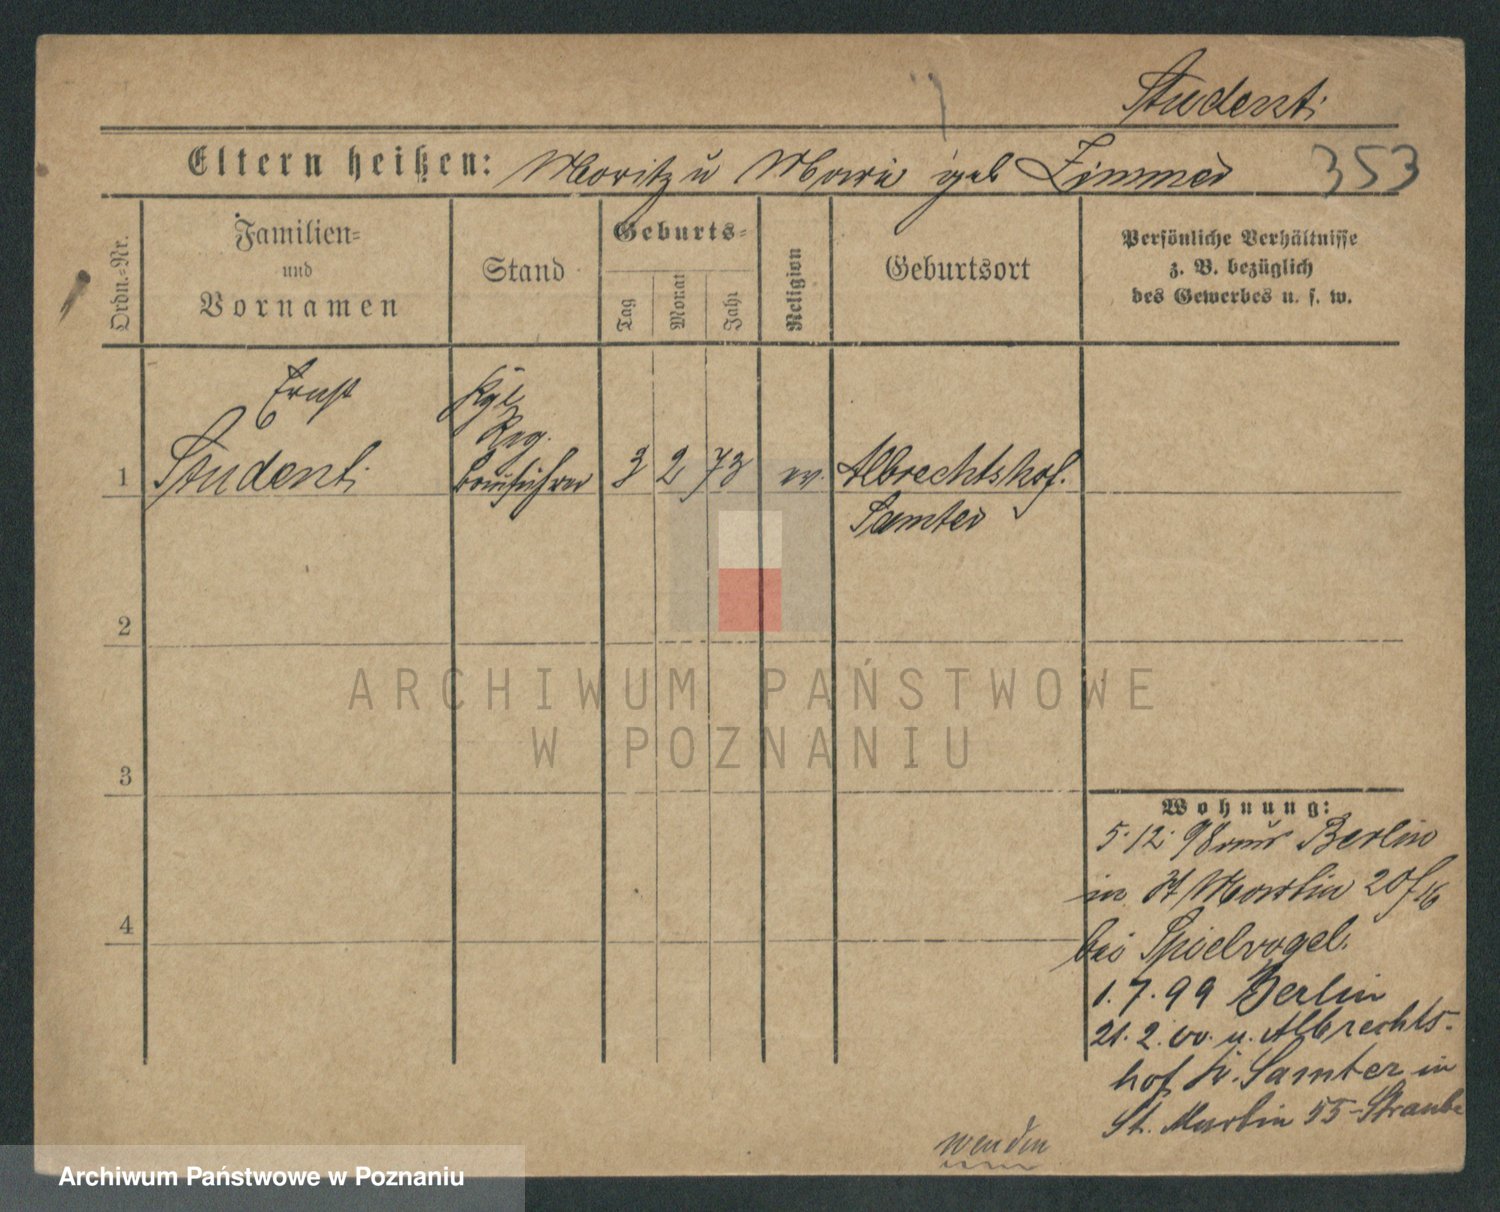 Student.
Eltern heißen: Moritz u Marie geb Zimmer 353
Ordn.-Nr.
Familien-
und
Vornamen
Stand
Geburts-
Tag
Monat
Jahr
Religion
Geburtsort
Persönliche Verhältnisse
z. B. bezüglich
des Gewerbes u. s. w.
Ernst
Kgl.
Reg.
1 Student. Bauführer 3 2 73 ev. Albrechtshof.
Samter
2
ARCHIWUM PAŃSTWOWE
W POZNANIU
3
Wohnung:
5.12.98 aus Berlin
in St Martin 20
4
bei Spielvogel.
1.7.99 Berlin
21.2.00. n. Albrechts-
hof Kr. Samter in
St. Martin 55-Straube
wenden
Archiwum Państwowe w Poznaniu